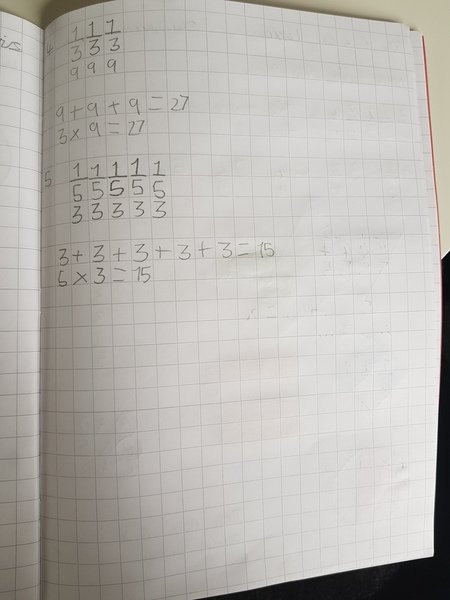 4 1 1 1
3 3 3
9 9 9
9 + 9 + 9 = 27
3 × 9 = 27
5 1 1 1 1 1
5 5 5 5 5
3 3 3 3 3
3 + 3 + 3 + 3 + 3 = 15
5 × 3 = 15